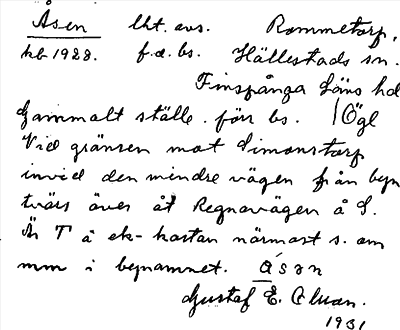 Åsen lht. avs. Rommetorp,
kb 1928. f.d. bs. Hällestads sn.
Finspånga Läns hd
Gammalt ställe. förr bs. /Ögl
Vid gränsen mot Simonstorp
invid den mindre vägen från byn
tvärs över åt Regnavägen å S.
Är T å ek-kartan närmast s. om
mm i bynamnet. åsən
Gustaf E. 
1931